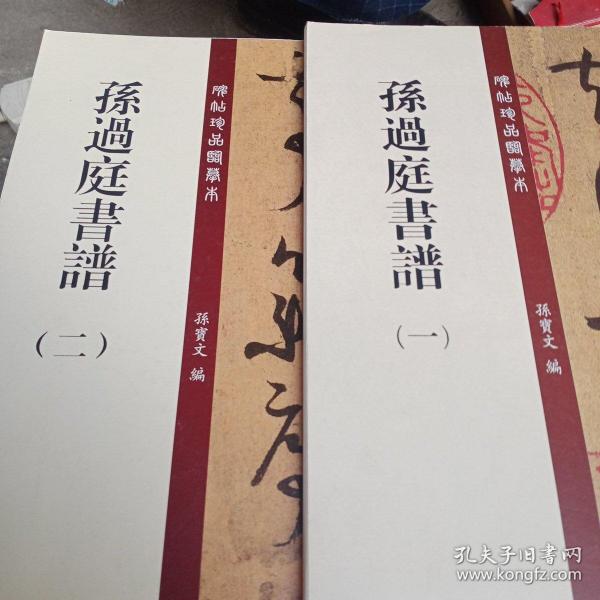 孫過庭書譜
(二)
碑帖珍品臨摹本
孫寶文 編
孫過庭書譜
(一)
碑帖珍品臨摹本
孫寶文 編
孔夫子旧书网
www.kongfz.com